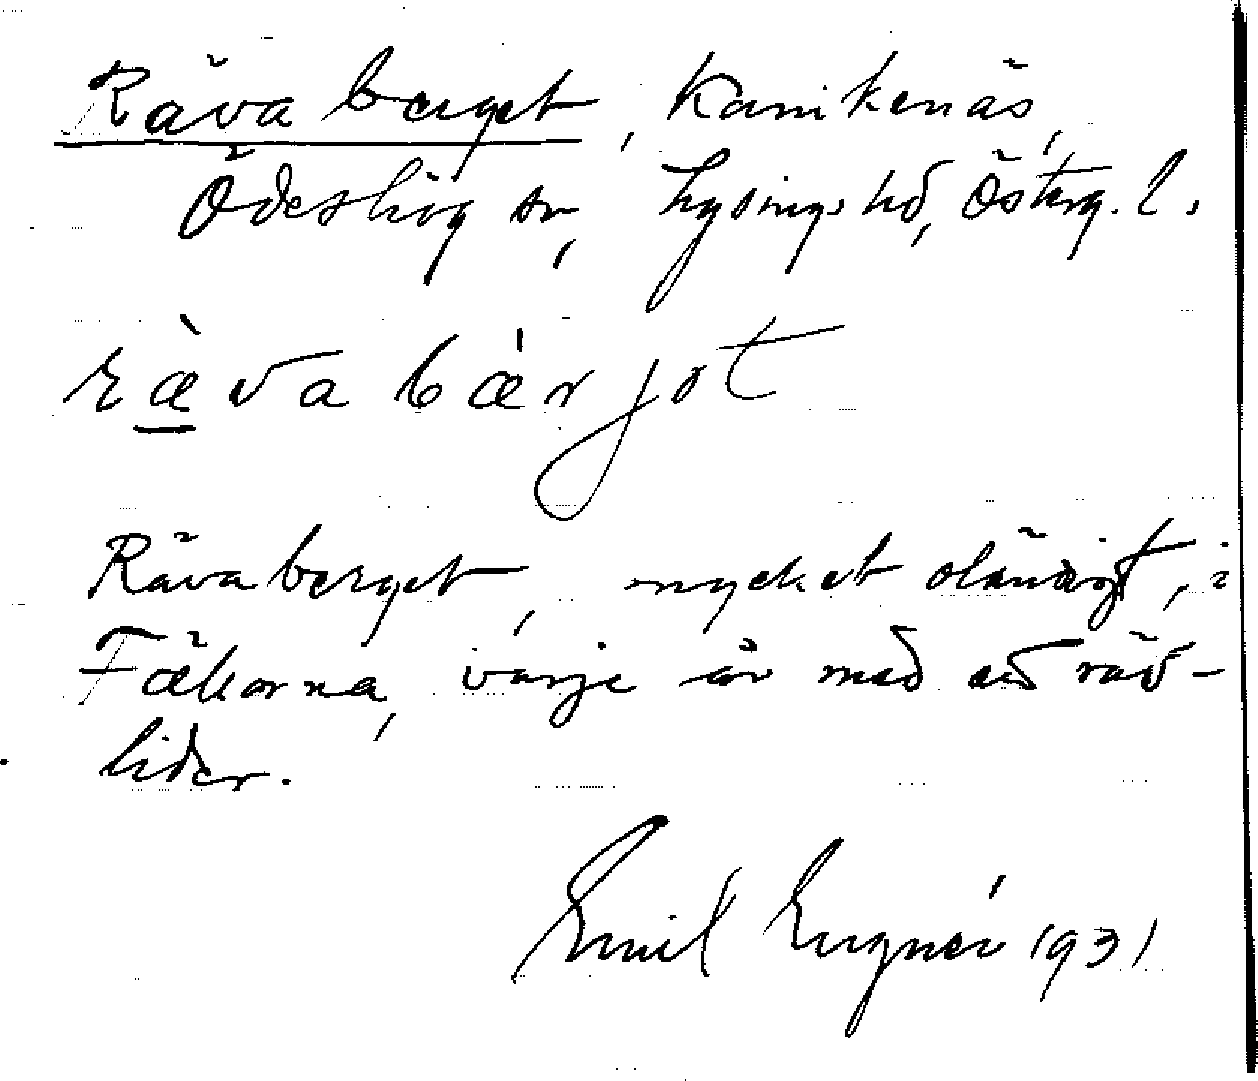 Rävaberget, Kanikenäs,
Ödeshög sn, Lysings hd, Österg. l.
ræ̀vabǽrjot
Rävaberget, mycket oländigt, i
Fäkorna, varje år med ett räv-
lider.
Emil Lugnér 1931